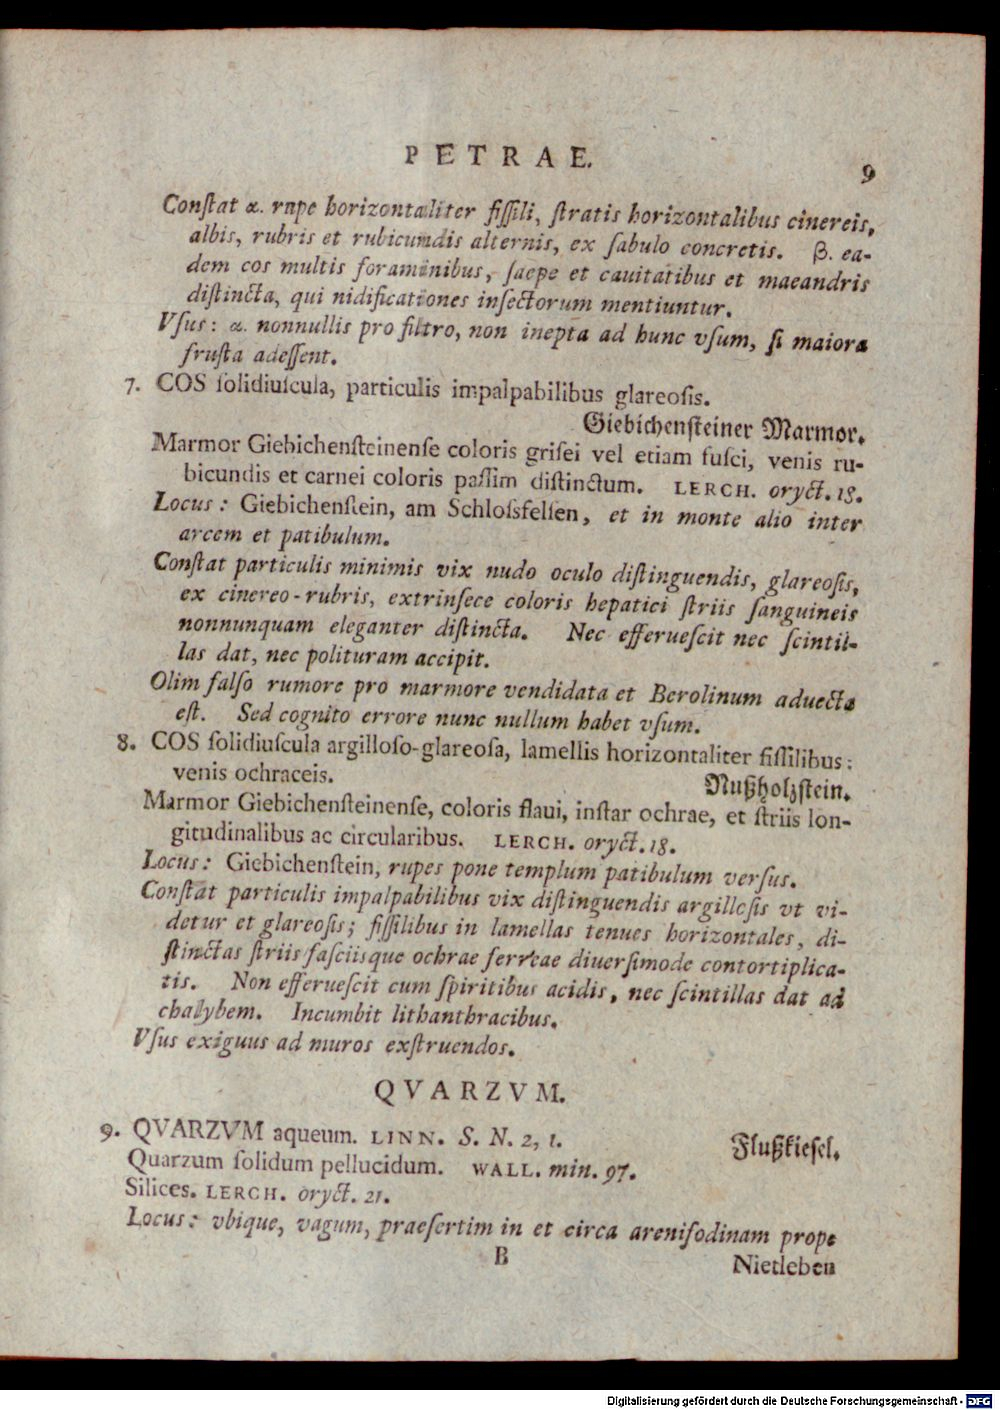 PETRAE.
9
Conſtat α. rupe horizontaliter fiſſili, ſtratis horizontalibus cinereis,
albis, rubris et rubicundis alternis, ex ſabulo concretis. β. ea-
dem cos multis foraminibus, ſaepe et cauitatibus et maeandris
diſtincta, qui nidificationes inſectorum mentiuntur.
Vſus: α. nonnullis pro filtro, non inepta ad hunc vſum, ſi maiora
fruſta adeſſent.
7. COS ſolidiuſcula, particulis impalpabilibus glareoſis.
Giebichenſteiner Marmor.
Marmor Giebichenſteinenſe coloris griſei vel etiam fuſci, venis ru-
bicundis et carnei coloris paſſim diſtinctum. LERCH. oryct. 18.
Locus: Giebichenſtein, am Schloſsfelſen, et in monte alio inter
arcem et patibulum.
Conſtat particulis minimis vix nudo oculo diſtinguendis, glareoſis,
ex cinereo-rubris, extrinſece coloris hepatici ſtriis ſanguineis
nonnunquam eleganter diſtincta. Nec efferueſcit nec ſcintil-
las dat, nec polituram accipit.
Olim falſo rumore pro marmore vendidata et Berolinum aduecta
eſt. Sed cognito errore nunc nullum habet vſum.
8. COS ſolidiuſcula argilloſo-glareoſa, lamellis horizontaliter fiſſilibus;
venis ochraceis. Nußholzſtein.
Marmor Giebichenſteinenſe, coloris flaui, inſtar ochrae, et ſtriis lon-
gitudinalibus ac circularibus. LERCH. oryct. 18.
Locus: Giebichenſtein, rupes pone templum patibulum verſus.
Conſtat particulis impalpabilibus vix diſtinguendis argilloſis vt vi-
detur et glareoſis; fiſſilibus in lamellas tenues horizontales, di-
ſtinctas ſtriis faſciisque ochrae ferreae diuerſimode contortiplica-
tis. Non efferueſcit cum ſpiritibus acidis, nec ſcintillas dat ad
chalybem. Incumbit lithanthracibus.
Vſus exiguus ad muros exſtruendos.
QVARZVM.
9. QVARZVM aqueum. LINN. S. N. 2, 1. Flußkieſel.
Quarzum ſolidum pellucidum. WALL. min. 97.
Silices. LERCH. oryct. 21.
Locus: vbique, vagum, praeſertim in et circa areniſodinam prope
B
Nietleben
Digitalisierung gefördert durch die Deutsche Forschungsgemeinschaft - DFG